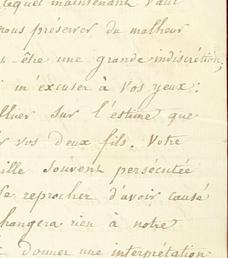 lequel maintenant vaut
nous préserver du malheur
être une grande indiscrétion,
m'excuser à vos yeux:
sur l'estime que
vos deux fils. Votre
souvent persécutée
se reprocher d'avoir causé
changera rien à notre
donner une interprétation